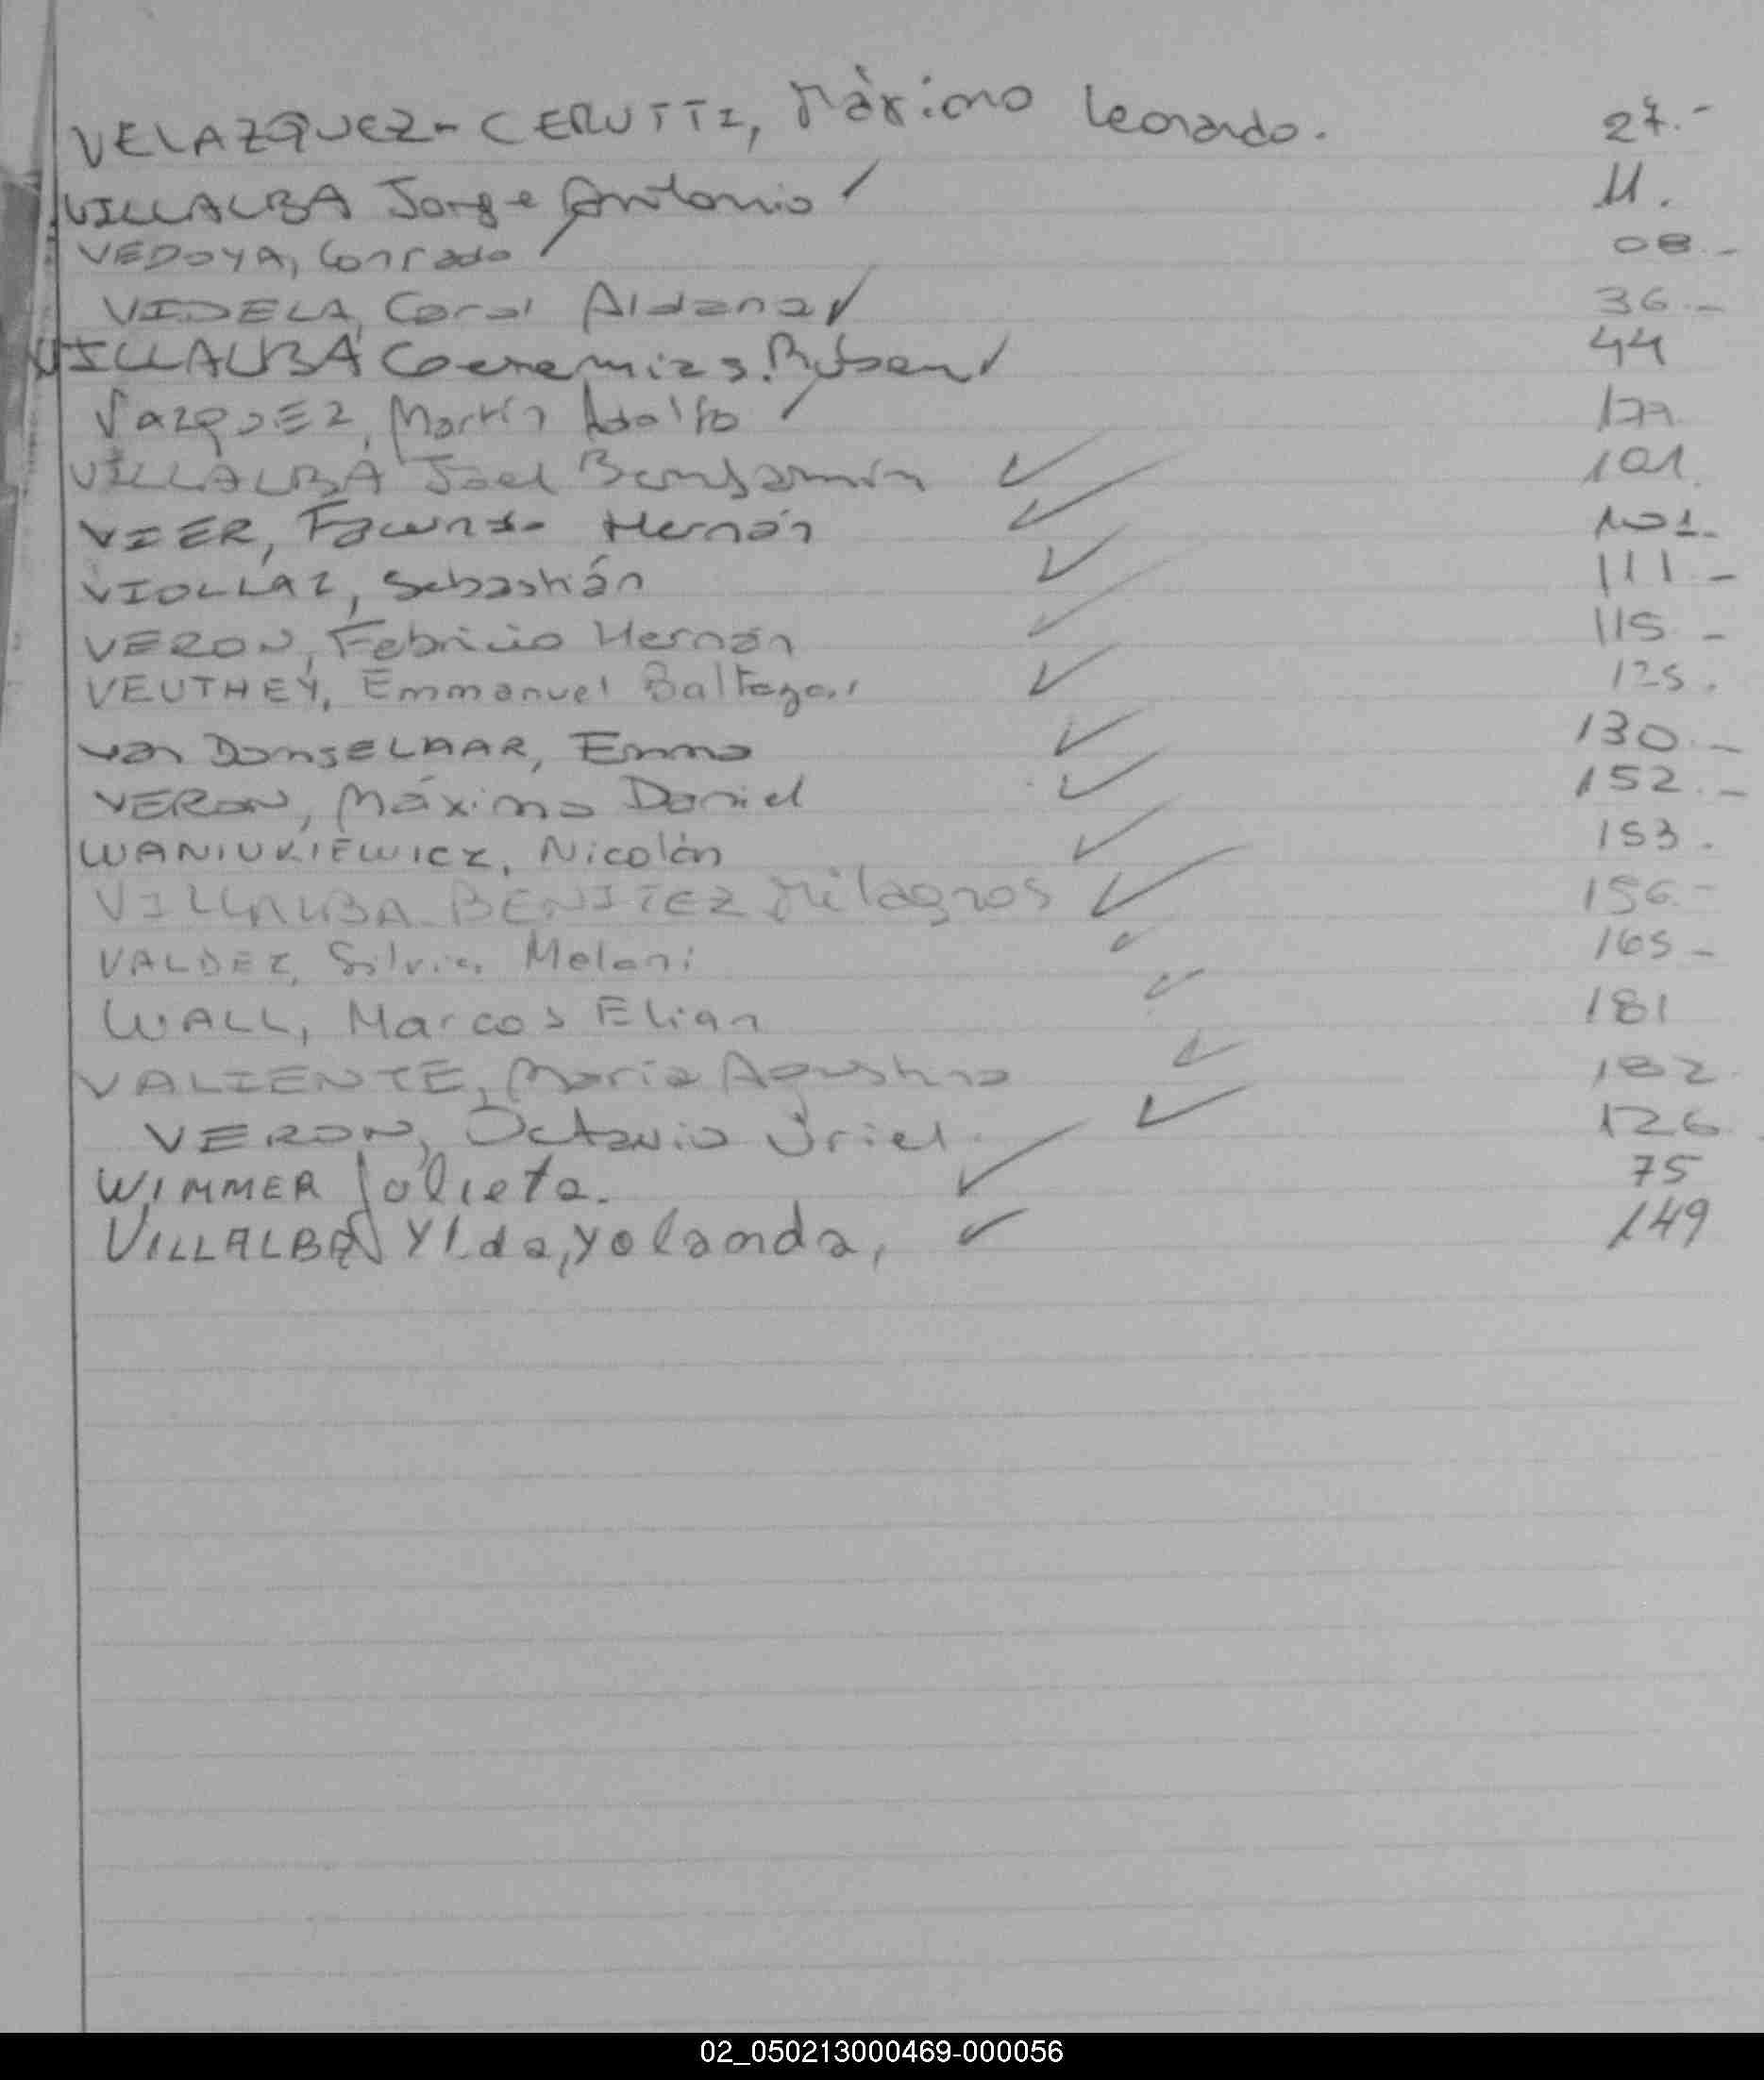 VELAZQUEZ-CERUTTI, Máximo Leonardo. 27.-
VILLALBA Jorge Antonio 11.
VEDOYA, Conrado 08.-
VIDELA, Coral Aldana 36.-
VILLALBA Geremias Ruben 44
VAZQUEZ, Martín Adolfo
VILLALBA Joel Benjamín 101.
VIER, Facundo Hernán 101.-
VIOLLAZ, Sebastián 111.-
VERON, Fabricio Hernán 115.-
VEUTHEY, Emmanuel Baltazar 125.
van DonsELAAR, Emma 130.-
VERON, Máximo Daniel 152.-
WANIUKIEWICZ, Nicolás 153.
VILLALBA BENITEZ Milagros 156.-
VALDEZ, Silvia Melani 165-
WALL, Marcos Elian 181
VALIENTE, María Agustina 182.
VERON, Octavio Uriel. 126
WIMMER Julieta. 75
VILLALBA Ylda, yolanda, 149
02_050213000469-000056